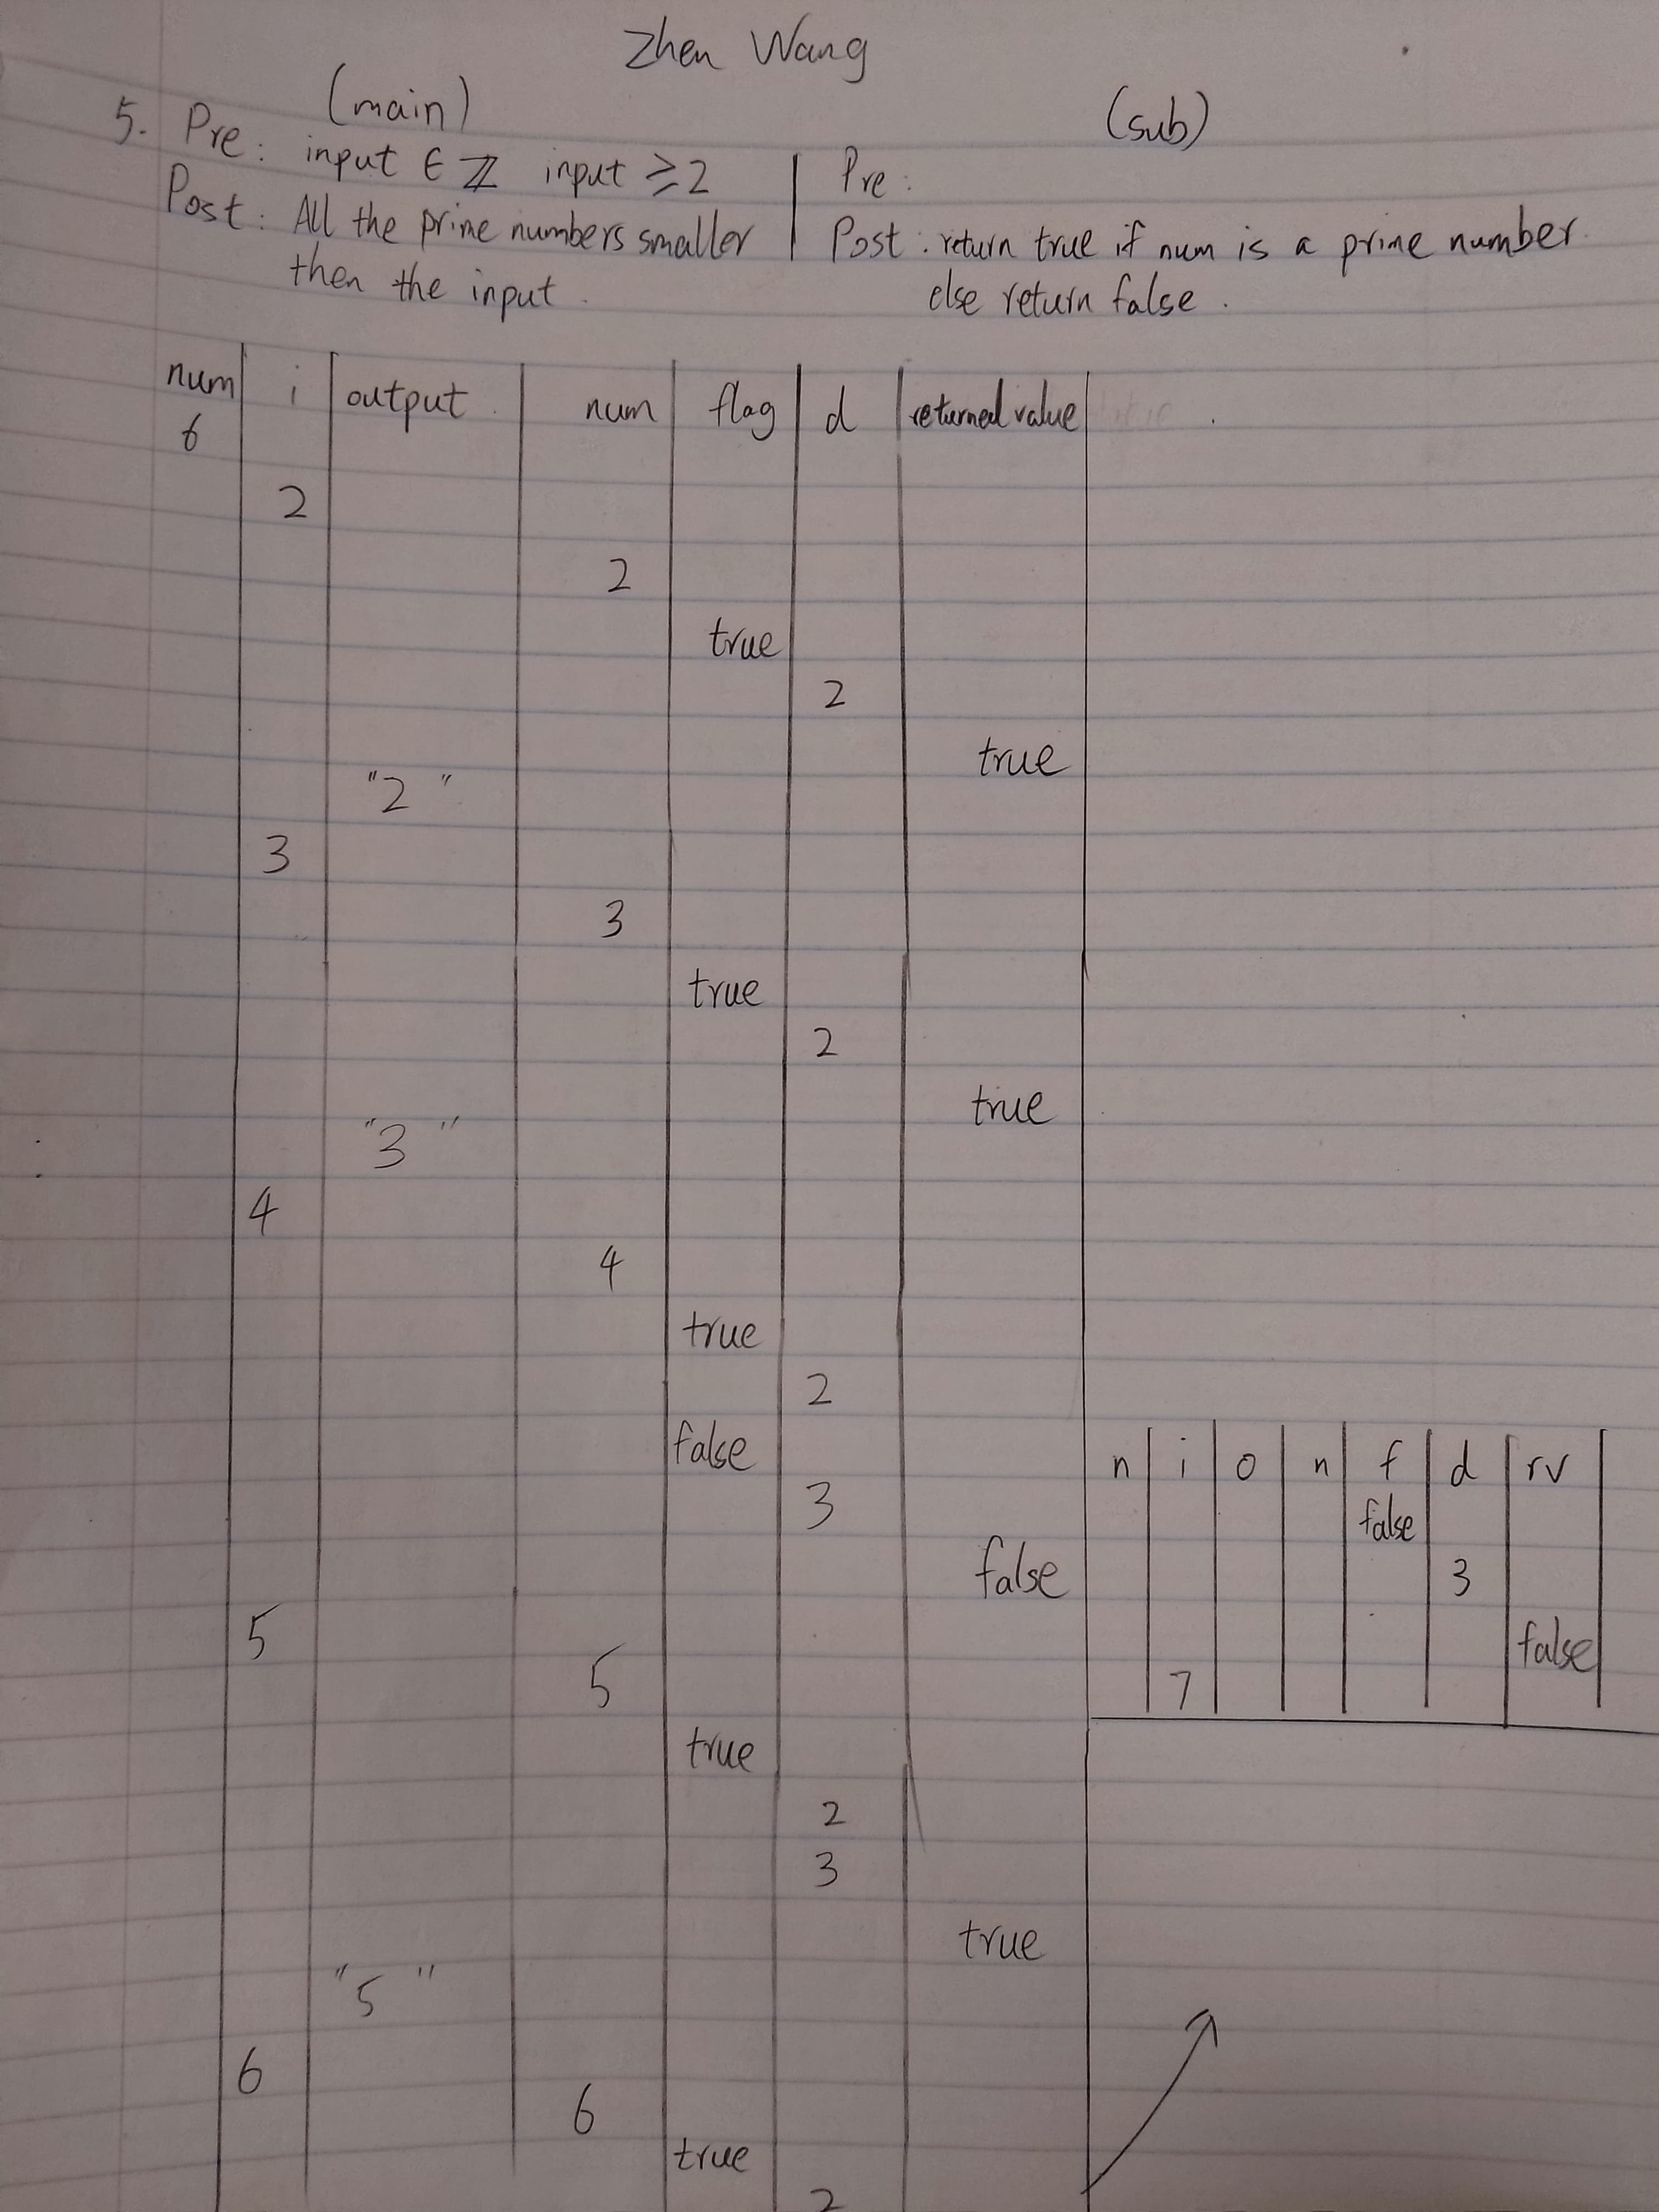 Zhen Wang
(main)
(sub)
5. Pre: input ∈ ℤ input ≥ 2
Post: All the prime numbers smaller
then the input.
Pre:
Post: return true if num is a prime number.
else return false.
num i output num flag d returned value
6
2
2
true
2
true
"2 "
3
3
true
2
true
"3 "
4
4
true
2
false
3
false
5
5
true
2
3
true
"5 "
6
6
true
2
n i o n f d rv
false
3
false
7